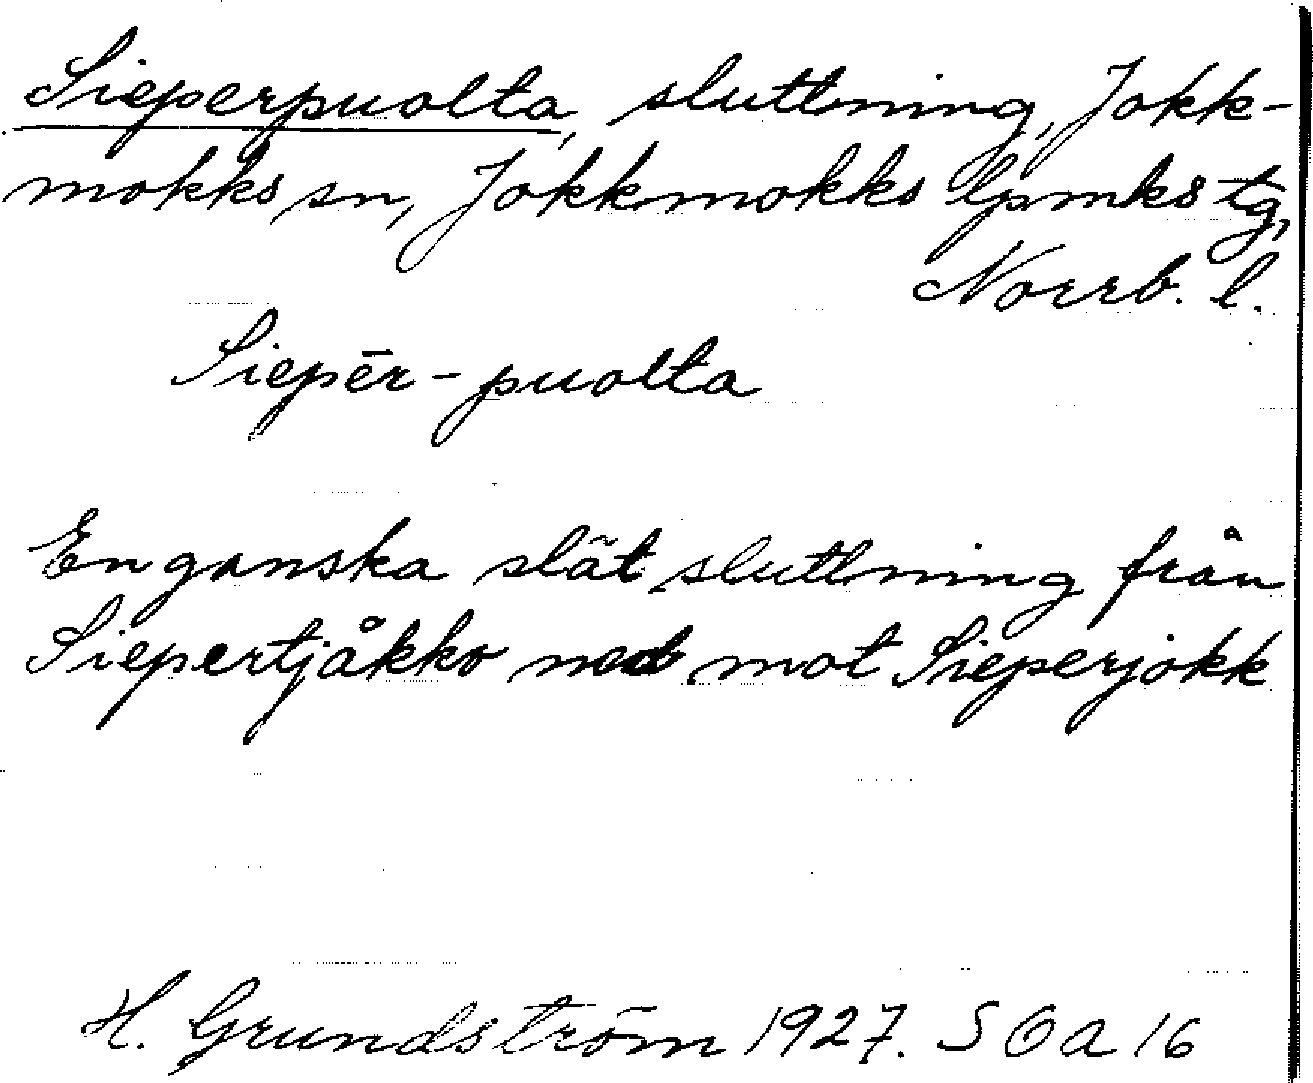 Sieperpuolta, sluttning, Jokk-
mokks sn, Jokkmokks lpmks tg,
Norrb. l.
Siepēr-puolta
En ganska slät sluttning från
Siepertjåkko ned mot Sieperjokk
H. Grundström 1927. SOA 16